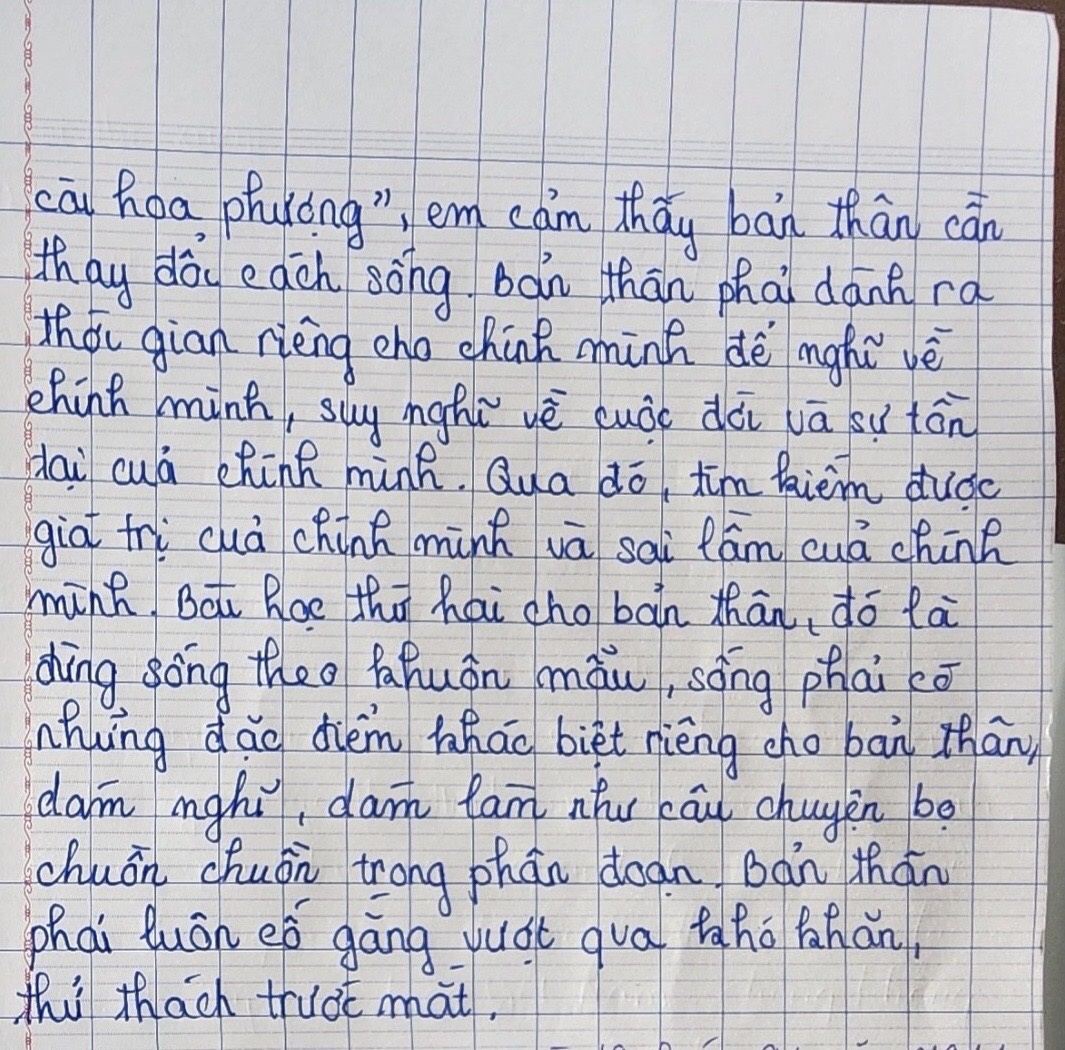 cài hoa phượng", em cảm thấy bản thân cần
thay đổi cách sống. Bản thân phải dành ra
thời gian riêng cho chính mình để nghĩ về
chính mình, suy nghĩ về cuộc đời và sự tồn
tại cuả chính mình. Qua đó, tìm kiếm được
giá trị cuả chính mình và sai lầm cuả chính
mình. Bài học thứ hai cho bản thân, đó là
đừng sống theo khuôn mẫu, sống phải có
những đặc điểm khác biệt riêng cho bản thân,
dám nghĩ, dám làm như câu chuyện bọ
chuồn chuồn trong phân đoạn. Bản thân
phải luôn cố gắng vượt qua khó khăn,
thử thách trước mắt.